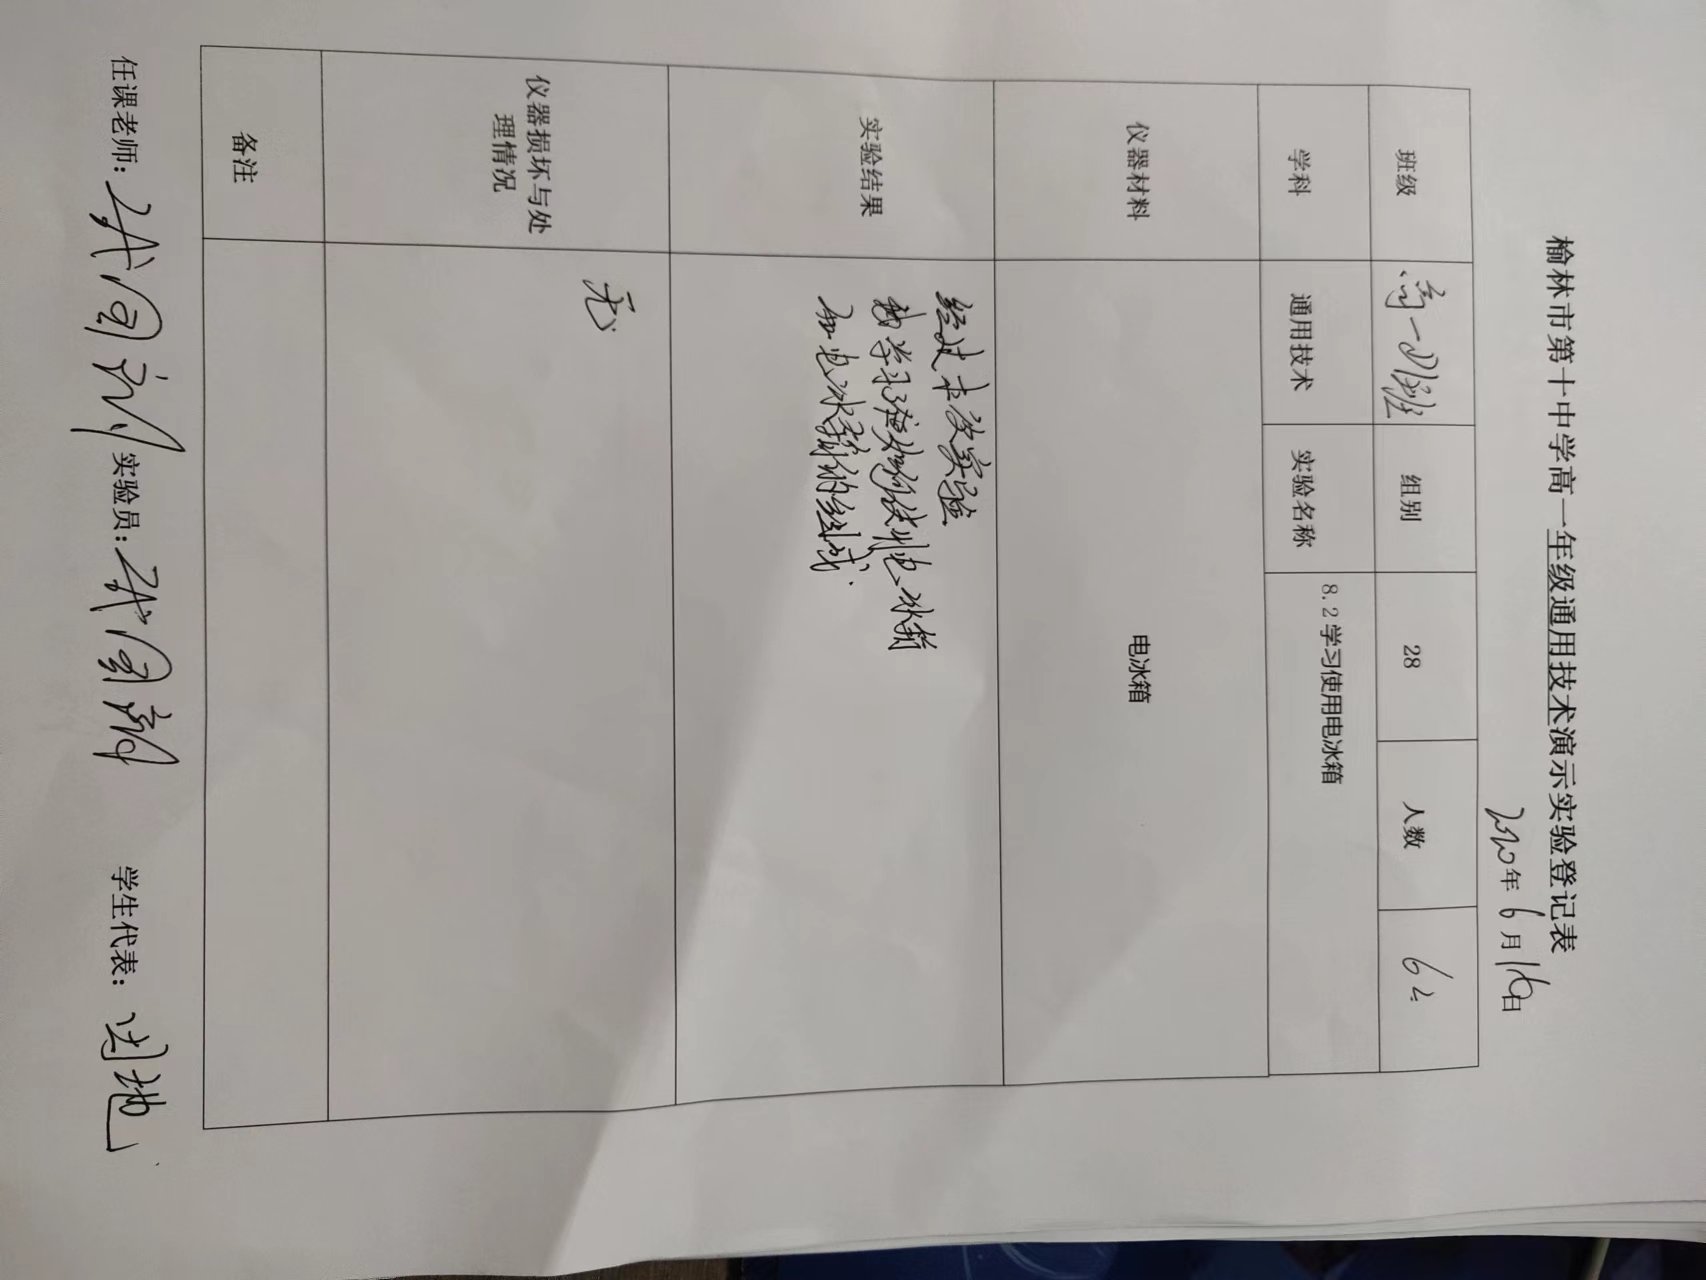 榆林市第十中学高一年级通用技术演示实验登记表
2020年6月16日
班级 高一 班 组别 28 人数 62
学科 通用技术 实验名称 8.2学习使用电冰箱
仪器材料 电冰箱
实验结果 经过本次实验
我学习了如何使用电冰箱
和电冰箱的组成.
仪器损坏与处
理情况 无
备注
任课老师: 实验员: 学生代表: